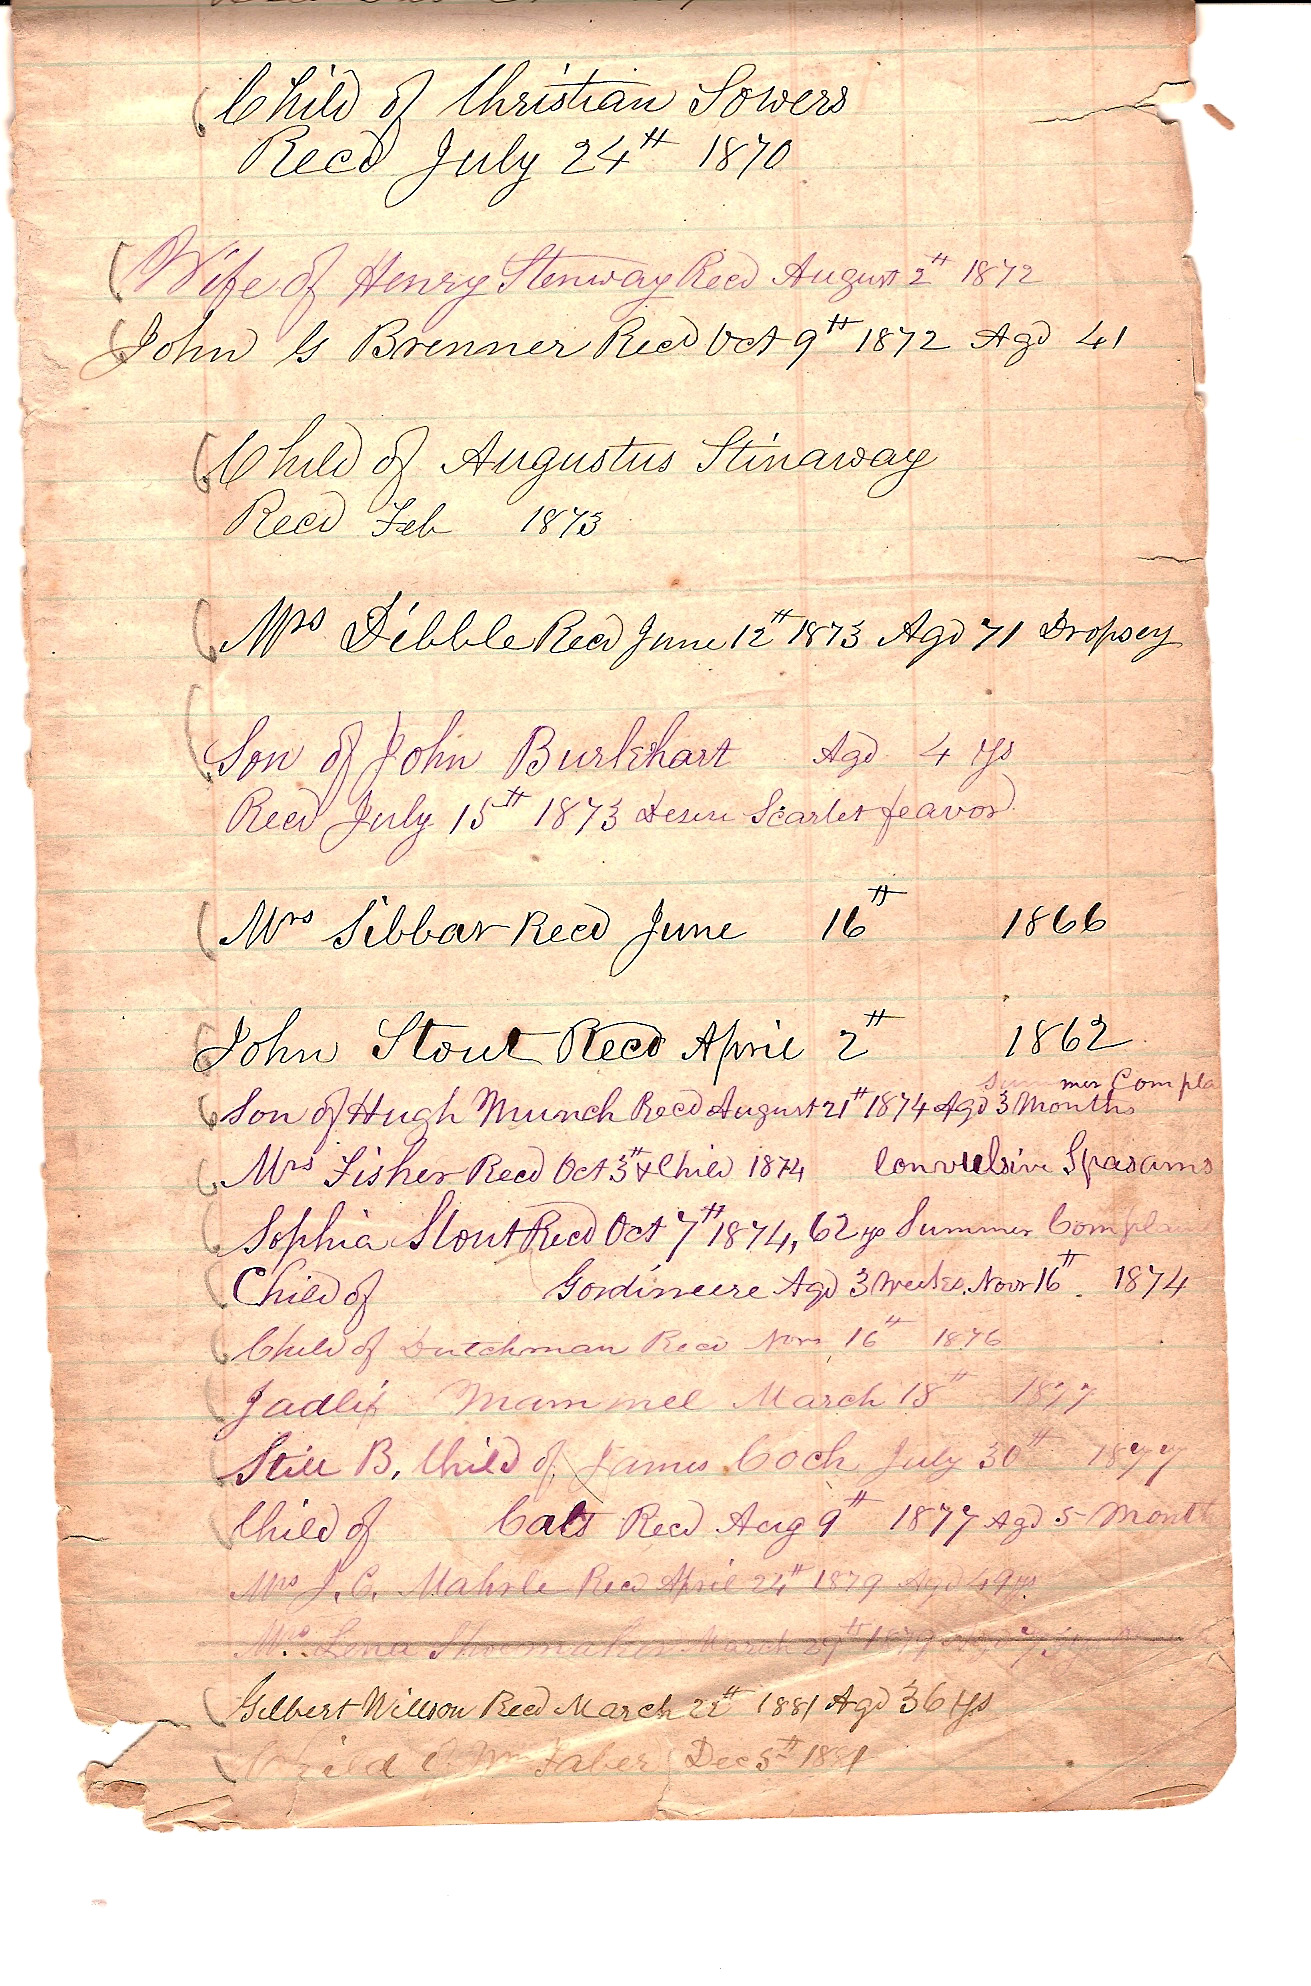 Child of Christian Sowers
Recd July 24th 1870
Wife of Henry Stenway Recd August 2th 1872
John G Brenner Recd Oct 9th 1872 Agd 41
Child of Augustus Stinaway
Recd Feb 1873
Mrs Dibble Recd June 12th 1873 Agd 71 Dropsey
Son of John Burkhart Agd 4 ys
Recd July 15th 1873 Scarlet feavor
Mrs Sibbar Recd June 16th 1866
John Stout Recd April 2th 1862
Summer Compla
Son of Hugh Munch Recd August 21th 1874 Agd 3 Months
Mrs Fisher Recd Oct 3th & Child 1874 Convulsive Spasams
Sophia Stout Recd Oct 7th 1874, 62 ys Summer Compla
Child of Gordineere Agd 3 Weeks. Novr 16th 1874
Child of Dutchman Recd Novr 16th 1876
Jadlif Mammel March 18th 1877
Still B. Child of James Coch July 30th 1877
Child of Cats Recd Aug 9th 1877 Agd 5 Month
Mrs J. C. Mahrle Recd April 22th 1879 Agd 49 ys
Mrs Lena Shoomaker March 29th 1879 Agd
Gilbert Willson Recd March 22th 1881 Agd 36 ys
Child of Wm Faber Dec 5th 1881